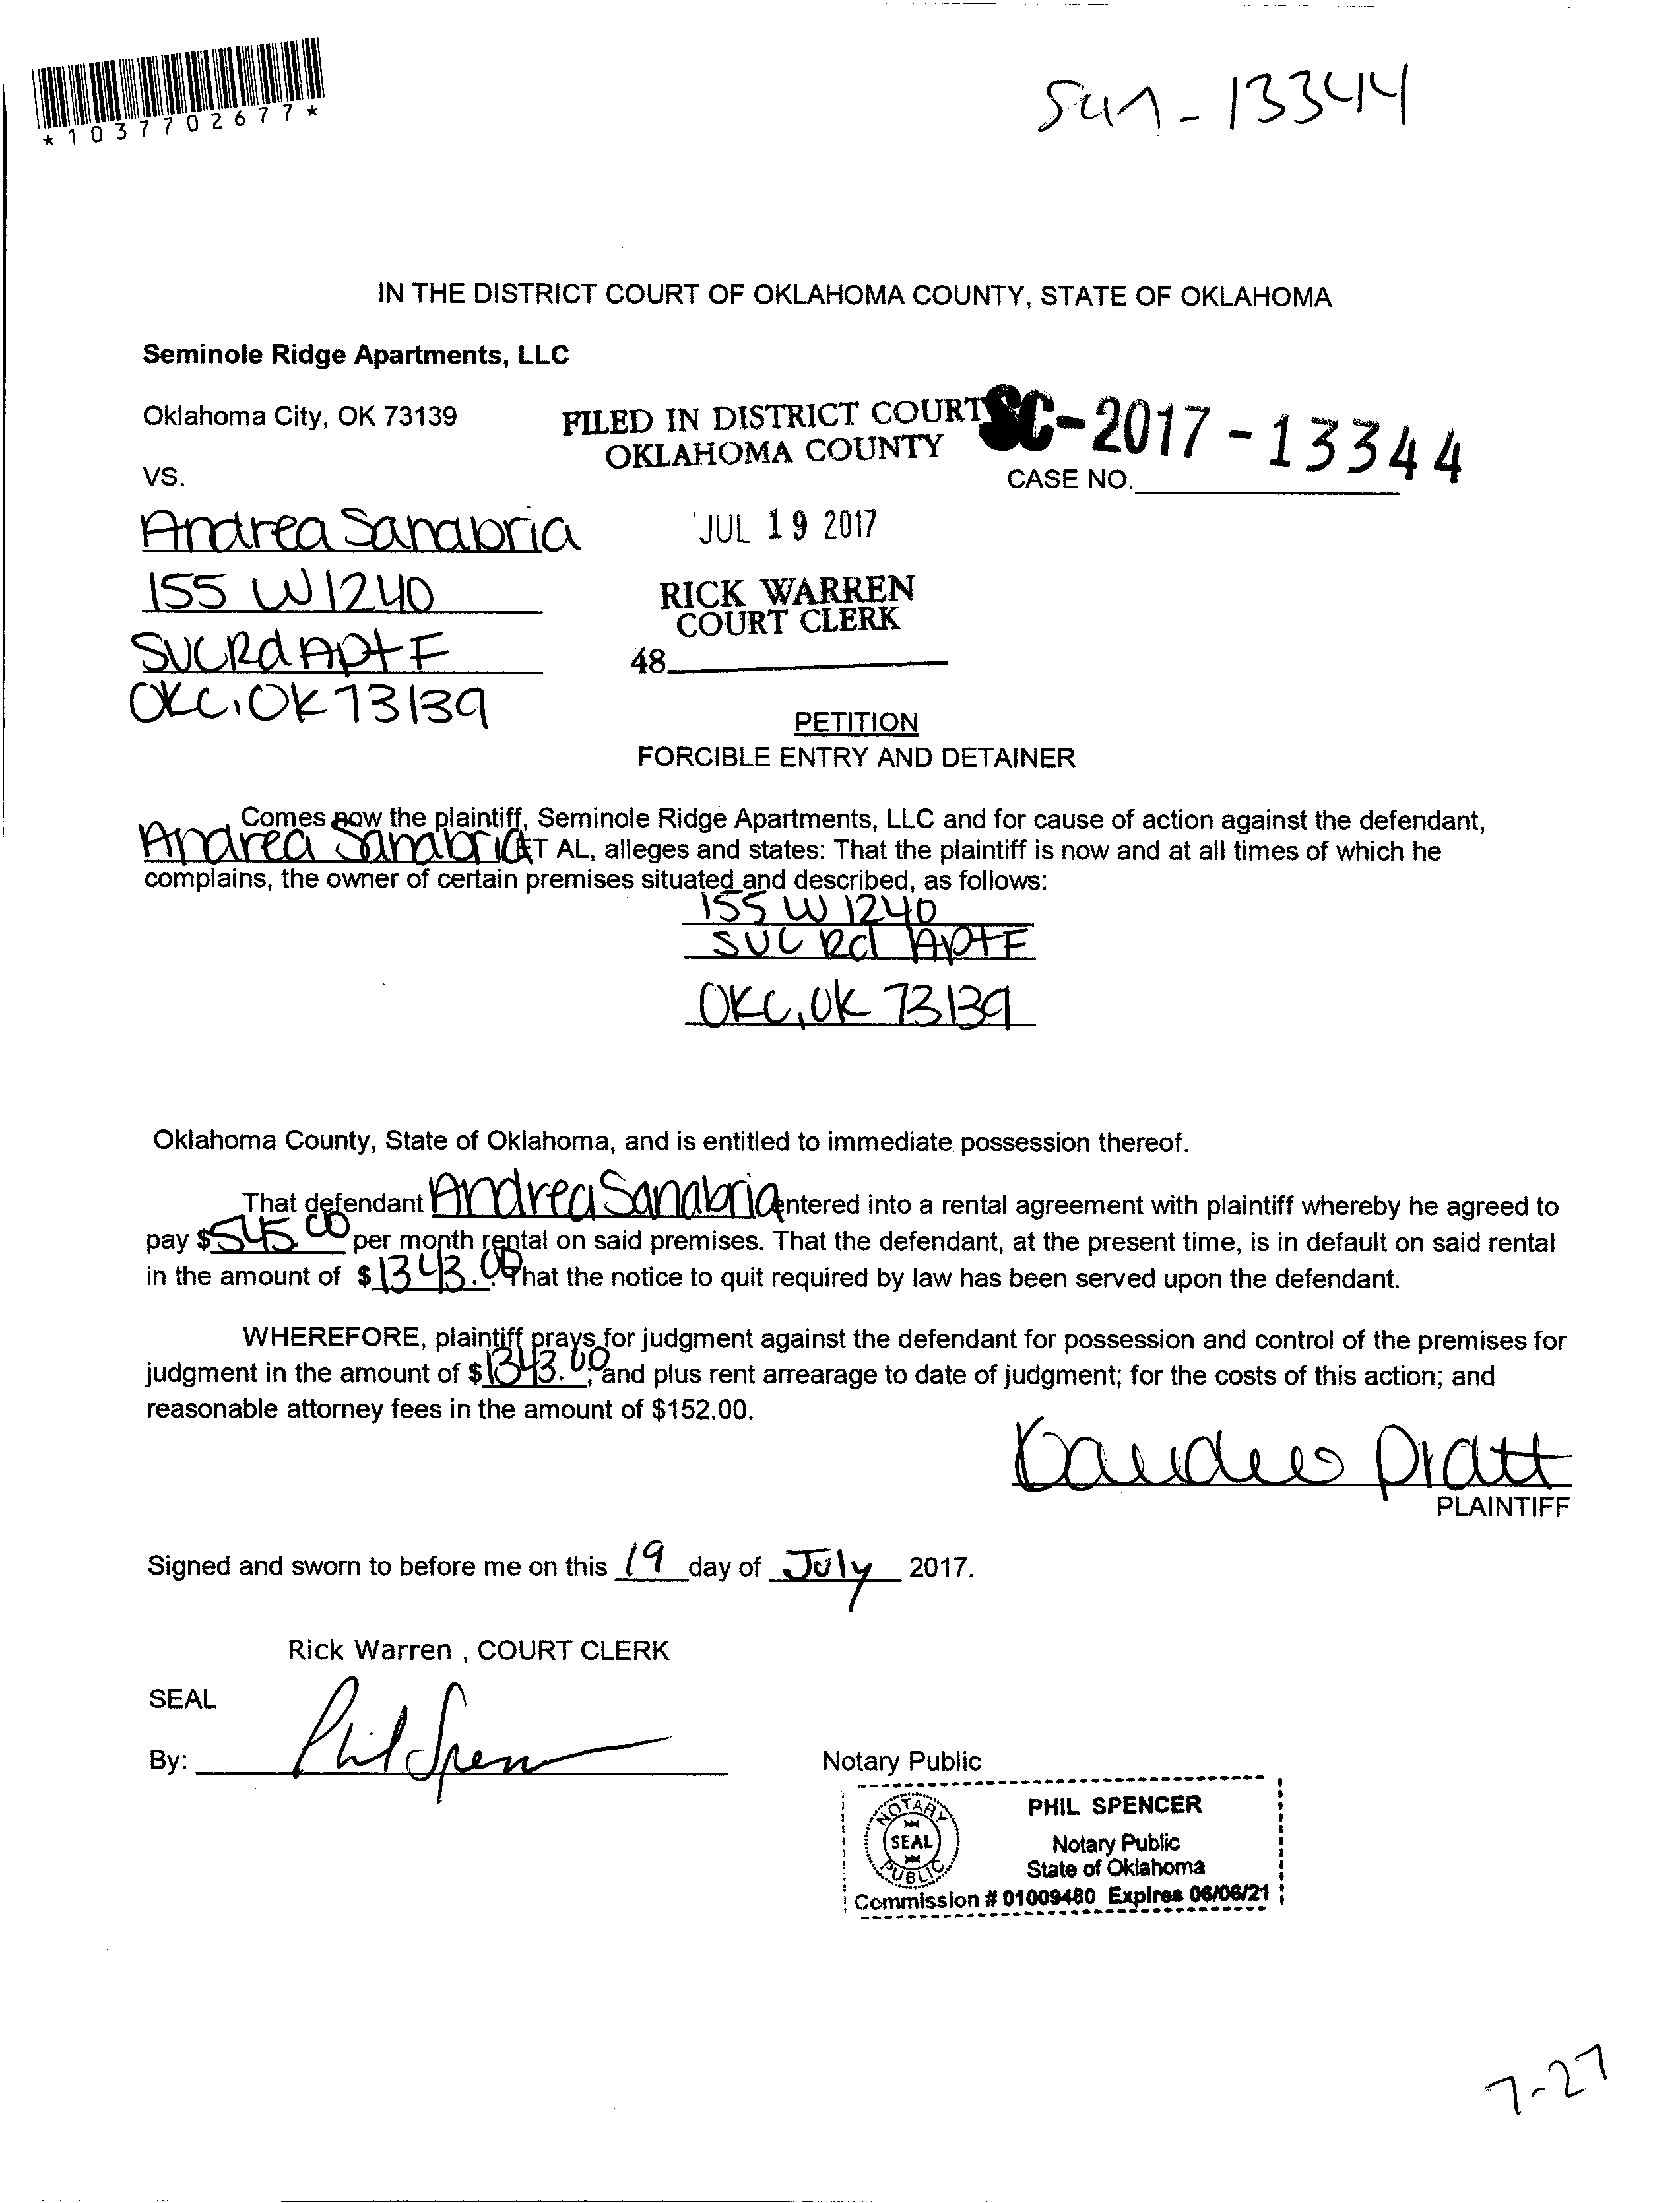 *1037702677*
IN THE DISTRICT COURT OF OKLAHOMA COUNTY, STATE OF OKLAHOMA
Seminole Ridge Apartments, LLC
Oklahoma City, OK 73139
FILED IN DISTRICT COURT
OKLAHOMA COUNTY
SC-2017-13344
CASE NO.
VS.
Andrea Sanabria
155 W 1240
SVC Rd Apt F
OKC, OK 73139
JUL 19 2017
RICK WARREN
COURT CLERK
48
PETITION
FORCIBLE ENTRY AND DETAINER
Comes now the plaintiff, Seminole Ridge Apartments, LLC and for cause of action against the defendant,
Andrea Sanabria ET AL, alleges and states: That the plaintiff is now and at all times of which he
complains, the owner of certain premises situated and described, as follows:
155 W 1240
SVC Rd Apt F
OKC, OK 73139
Oklahoma County, State of Oklahoma, and is entitled to immediate possession thereof.
That defendant Andrea Sanabria entered into a rental agreement with plaintiff whereby he agreed to
pay $545.00 per month rental on said premises. That the defendant, at the present time, is in default on said rental
in the amount of $1343.00. That the notice to quit required by law has been served upon the defendant.
WHEREFORE, plaintiff prays for judgment against the defendant for possession and control of the premises for
judgment in the amount of $1343.00, and plus rent arrearage to date of judgment; for the costs of this action; and
reasonable attorney fees in the amount of $152.00.
Pratt
PLAINTIFF
Signed and sworn to before me on this 19 day of July 2017.
Rick Warren , COURT CLERK
SEAL
By: Phil Spencer
Notary Public
NOTARY
SEAL
PUBLIC
PHIL SPENCER
Notary Public
State of Oklahoma
Commission # 01009480 Expires 06/06/21
7-27